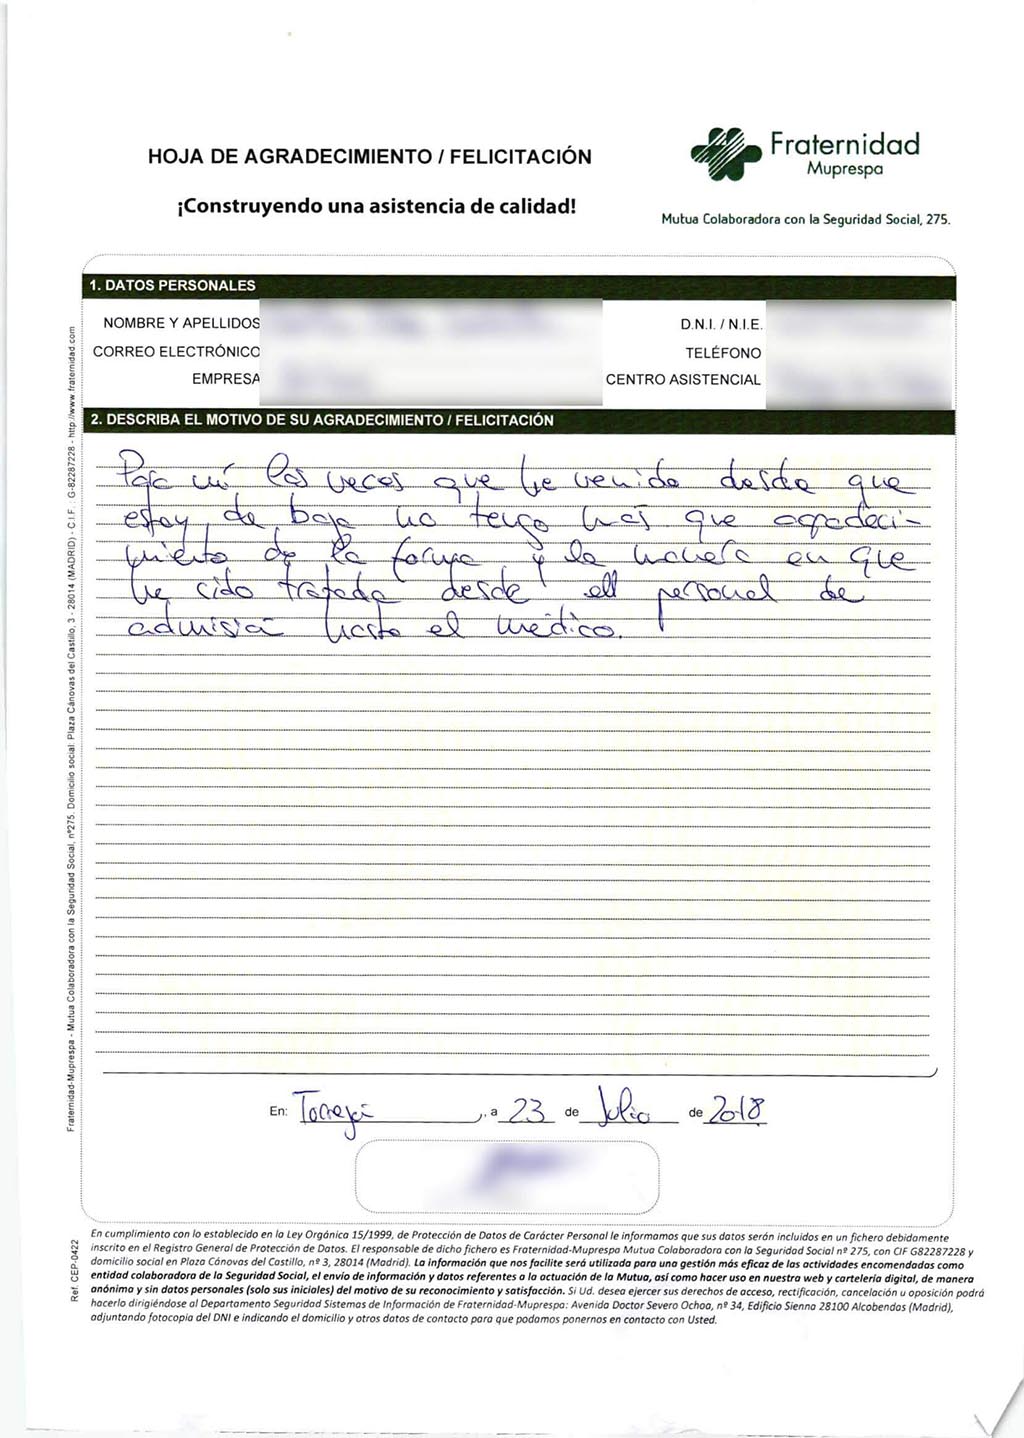 HOJA DE AGRADECIMIENTO / FELICITACIÓN
¡Construyendo una asistencia de calidad!
Fraternidad
Muprespa
Mutua Colaboradora con la Seguridad Social, 275.
1. DATOS PERSONALES
NOMBRE Y APELLIDOS
D.N.I. / N.I.E.
CORREO ELECTRÓNICO
TELÉFONO
EMPRESA
CENTRO ASISTENCIAL
2. DESCRIBA EL MOTIVO DE SU AGRADECIMIENTO / FELICITACIÓN
Para mí las veces que he venido desde que
estoy de baja no tengo más que agradeci-
miento de la forma y la manera en que
he sido tratada desde ell personal de
admisión hasta el médico.
En: Torrejón, a 23 de Julio de 2018
En cumplimiento con lo establecido en la Ley Orgánica 15/1999, de Protección de Datos de Carácter Personal le informamos que sus datos serán incluidos en un fichero debidamente
inscrito en el Registro General de Protección de Datos. El responsable de dicho fichero es Fraternidad-Muprespa Mutua Colaboradora con la Seguridad Social nº 275, con CIF G82287228 y
domicilio social en Plaza Cánovas del Castillo, nº 3, 28014 (Madrid). La información que nos facilite será utilizada para una gestión más eficaz de las actividades encomendadas como
entidad colaboradora de la Seguridad Social, el envío de información y datos referentes a la actuación de la Mutua, así como hacer uso en nuestra web y cartelería digital, de manera
anónima y sin datos personales (solo sus iniciales) del motivo de su reconocimiento y satisfacción. Si Ud. desea ejercer sus derechos de acceso, rectificación, cancelación u oposición podrá
hacerlo dirigiéndose al Departamento Seguridad Sistemas de Información de Fraternidad-Muprespa: Avenida Doctor Severo Ochoa, nº 34, Edificio Sienna 28100 Alcobendas (Madrid),
adjuntando fotocopia del DNI e indicando el domicilio y otros datos de contacto para que podamos ponernos en contacto con Usted.
Fraternidad-Muprespa - Mutua Colaboradora con la Seguridad Social, nº275. Domicilio social: Plaza Cánovas del Castillo, 3 - 28014 (MADRID) - C.I.F.: G-82287228 - http://www.fraternidad.com
Ref. CEP-0422